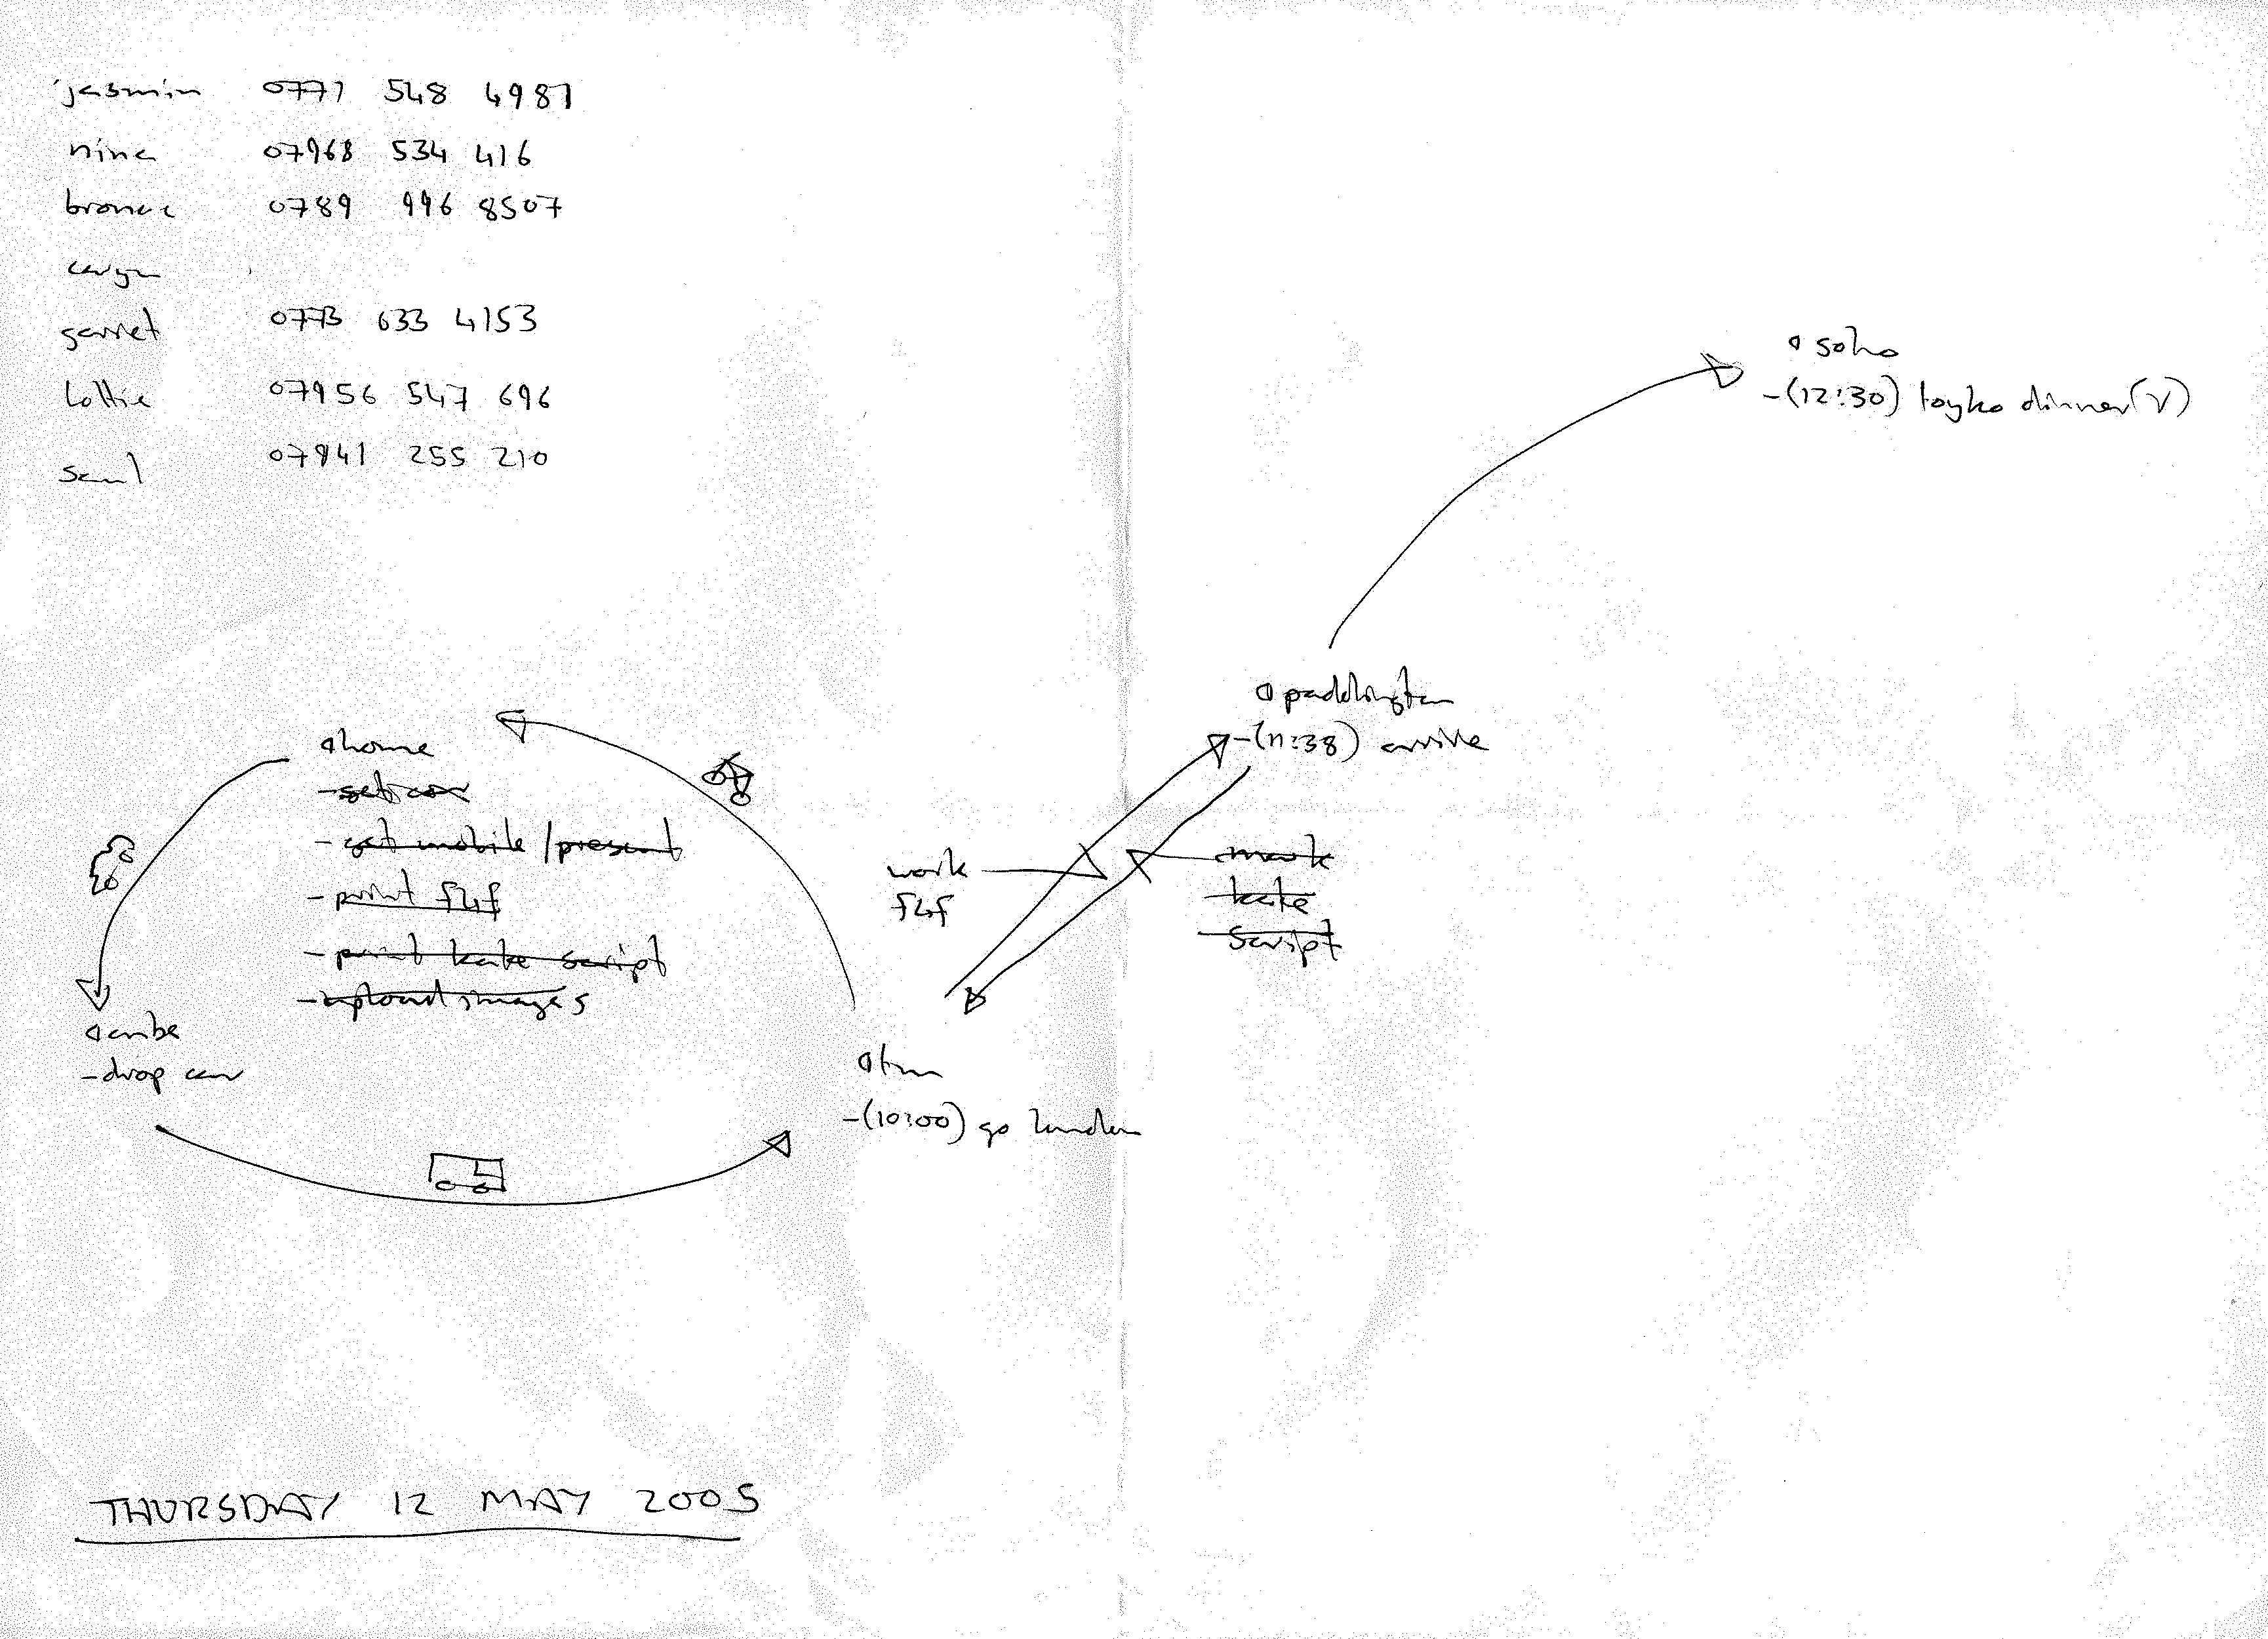 jasmin 0771 548 4981
nina 07968 534 416
0789 996 8507
caryn
garret 0773 633 4153
lottie 07956 547 696
saul 07941 255 210
soho
-(12:30) toyko dinner (V)
paddington
-(11:38) arrive
home
- get car
- get mobile / present
- print f2f
- print kate script
- upload images
work
f2f
mark
kate
script
cube
- drop car
-(10:00) go london
THURSDAY 12 MAY 2005